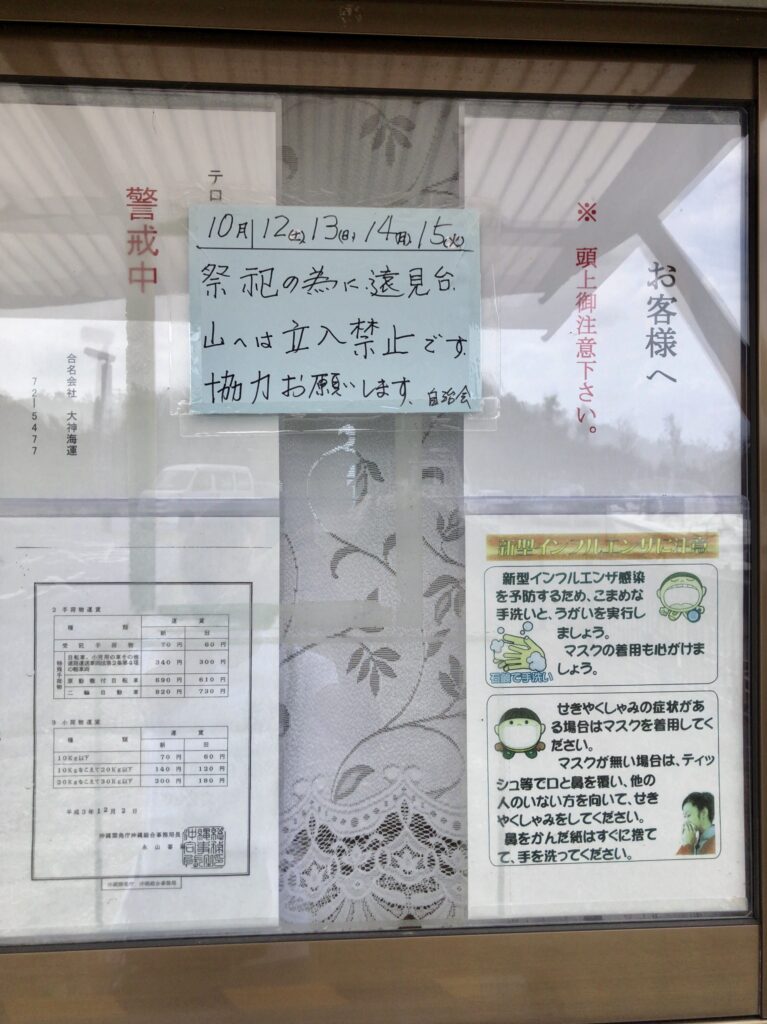 10月 12(土) 13(日) 14(月) 15(火)
祭祀の為に遠見台
山へは立入禁止です
協力お願いします 自治会
テロ
警戒中
合名会社 大神海運
7215477
お客様へ
※ 頭上御注意下さい。
2 手荷物運賃
種類 運賃
新 旧
受託手荷物 70円 60円
特殊手荷物
自転車、小児用の車その他
道路運送車両法第2条第4項
の軽車両 340円 300円
原動機付自転車 690円 610円
二輪自動車 820円 730円
3 小荷物運賃
種類 運賃
新 旧
10Kg以下 70円 60円
10Kgをこえて20Kg以下 140円 120円
20Kgをこえて30Kg以下 200円 180円
平成3年12月2日
沖縄開発庁沖縄総合事務局長
永山
沖縄開発庁 沖縄総合事務局
新型インフルエンザに注意
新型インフルエンザ感染
を予防するため、こまめな
手洗いと、うがいを実行し
ましょう。
マスクの着用も心がけま
しょう。
石鹸で手洗い
せきやくしゃみの症状があ
る場合はマスクを着用してく
ださい。
マスクが無い場合は、ティッ
シュ等で口と鼻を覆い、他の
人のいない方を向いて、せき
やくしゃみをしてください。
鼻をかんだ紙はすぐに捨て
て、手を洗ってください。